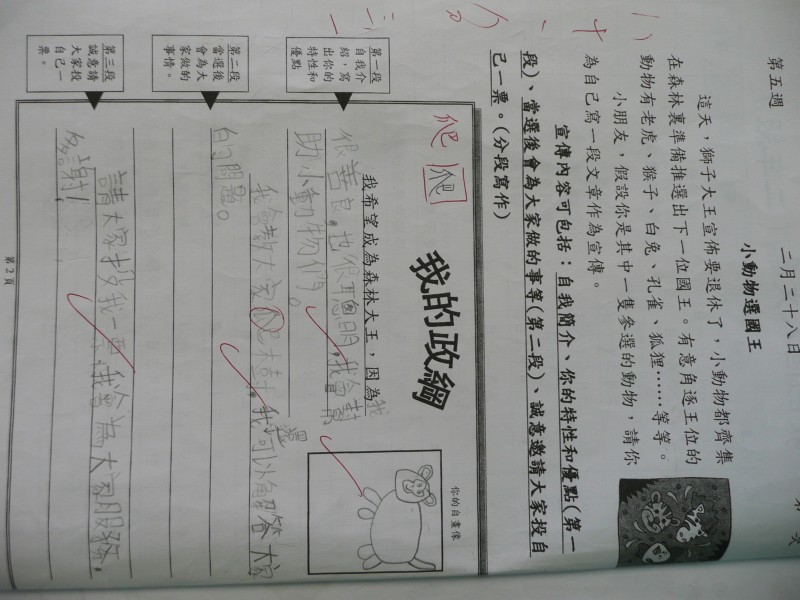 第五週
二月二十八日
小動物選國王
這天，獅子大王宣佈要退休了，小動物都齊集
在森林裏準備推選出下一位國王。有意角逐王位的
動物有老虎、猴子、白兔、孔雀、狐狸……等等。
小朋友，假設你是其中一隻參選的動物，請你
為自己寫一段文章作為宣傳。
宣傳內容可包括：自我簡介、你的特性和優點（第一
段）、當選後會為大家做的事等（第二段）、誠意邀請大家投自
己一票。（分段寫作）
我的政綱
你的自畫像
爬 爬
第一段
自我介
紹，寫
出你的
特性和
優點
我希望成為森林大王，因為我
很善良，也很聰明，我會幫
助小動物們。
第二段
當選後
會為大
家做的
事情。
我會教大家爬樹，我還可以解答大家
的問題。
第三段
誠意請
大家投
自己一
票。
請大家投我一票，我會為大家服務，
多謝！
第2頁